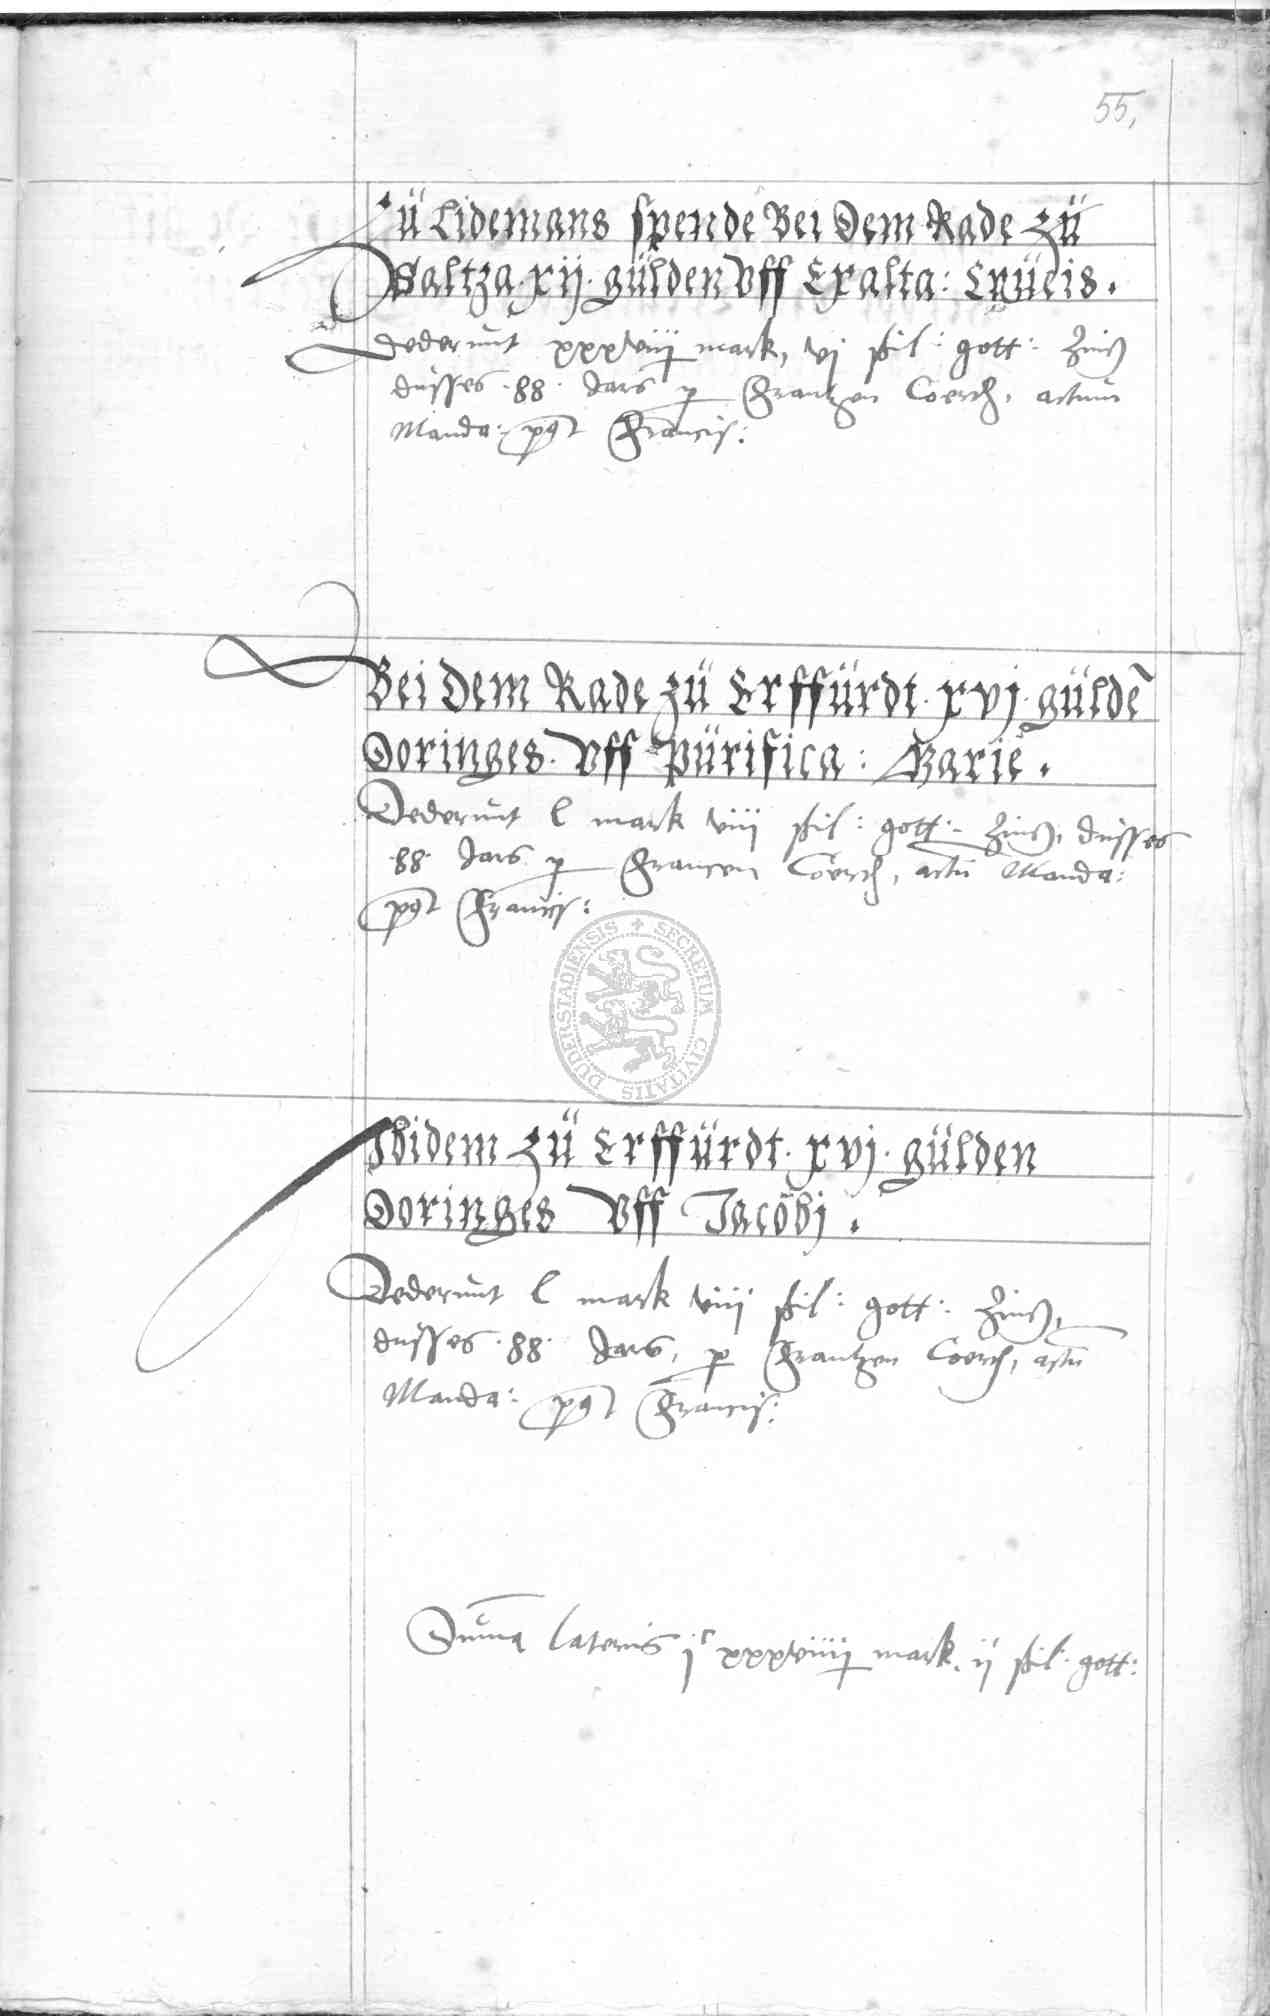 55,
Zü Lidemans spende Bei Dem Rade Zü
Saltza. xij. gülden Vff Exalta: Crücis.
dederunt xxxviiij mark, vj ßil: gott: Zinß
dusses .88. Jars p Frantzen Coerch, actum
Manda: post Francis:
Bei Dem Rade Zü Erffürdt. xvj. güldē
Doringes. Vff Pürifica: Marie.
Dederunt l mark viij ßil: gott: Zinß, dusses
.88. Jars p Francen Coerch, actū Manda:
post Francis:
SECRETUM CIVITATIS DUDERSTADIENSIS
Ibidem Zü Erffürdt. xvj. gülden
Doringes Vff Jacobj.
Dederunt l mark viij ßil: gott: Zinß,
dusses .88. Jars, p Frantzen Coerch, actū
Manda: post Francis:
Suma lateris jc xxxviiij mark. ij ßil: gott: